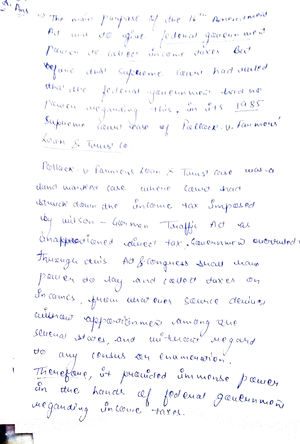 Ans 1) The main purpose of the 16th Amendment
Act was to give federal government
power to collect income taxes. But
before that Supreme Court had ruled
that the federal government had no
power regarding this, in its 1985
Supreme Court case of Pollock v. Farmers'
Loan & Trust Co
Pollack v Farmers Loan & Trust case was a
land marked case where court had
struck down the income tax imposed
by Wilson - Gorman Traffic Act as
unapportioned direct tax. Government overruled
through this Act & Congress shall have
power to lay and collect taxes on
incomes, from whatever source derived
without apportionment among the
several states, and without regard
to any census or enumeration.
Therefore, it provided immense power
in the hands of federal government
regarding income taxes.